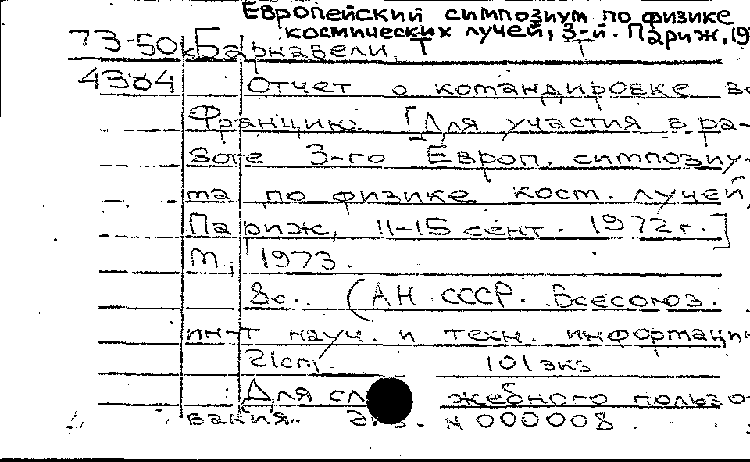 Европейский симпозиум по физике
космических лучей, 3-й. Париж, 19
73-50к Барнавели, Т
4304 Отчет о командировке во
Францию. [Для участия в ра-
боте 3-го Европ. симпозиу-
ма по физике косм. лучей,
Париж, 11-15 сент. 1972 г.]
М., 1973.
8с. (АН СССР. Всесоюз.
ин-т науч. и техн. информации
21см. 101 экз
Для служебного пользо-
вания. Экз. № 000008